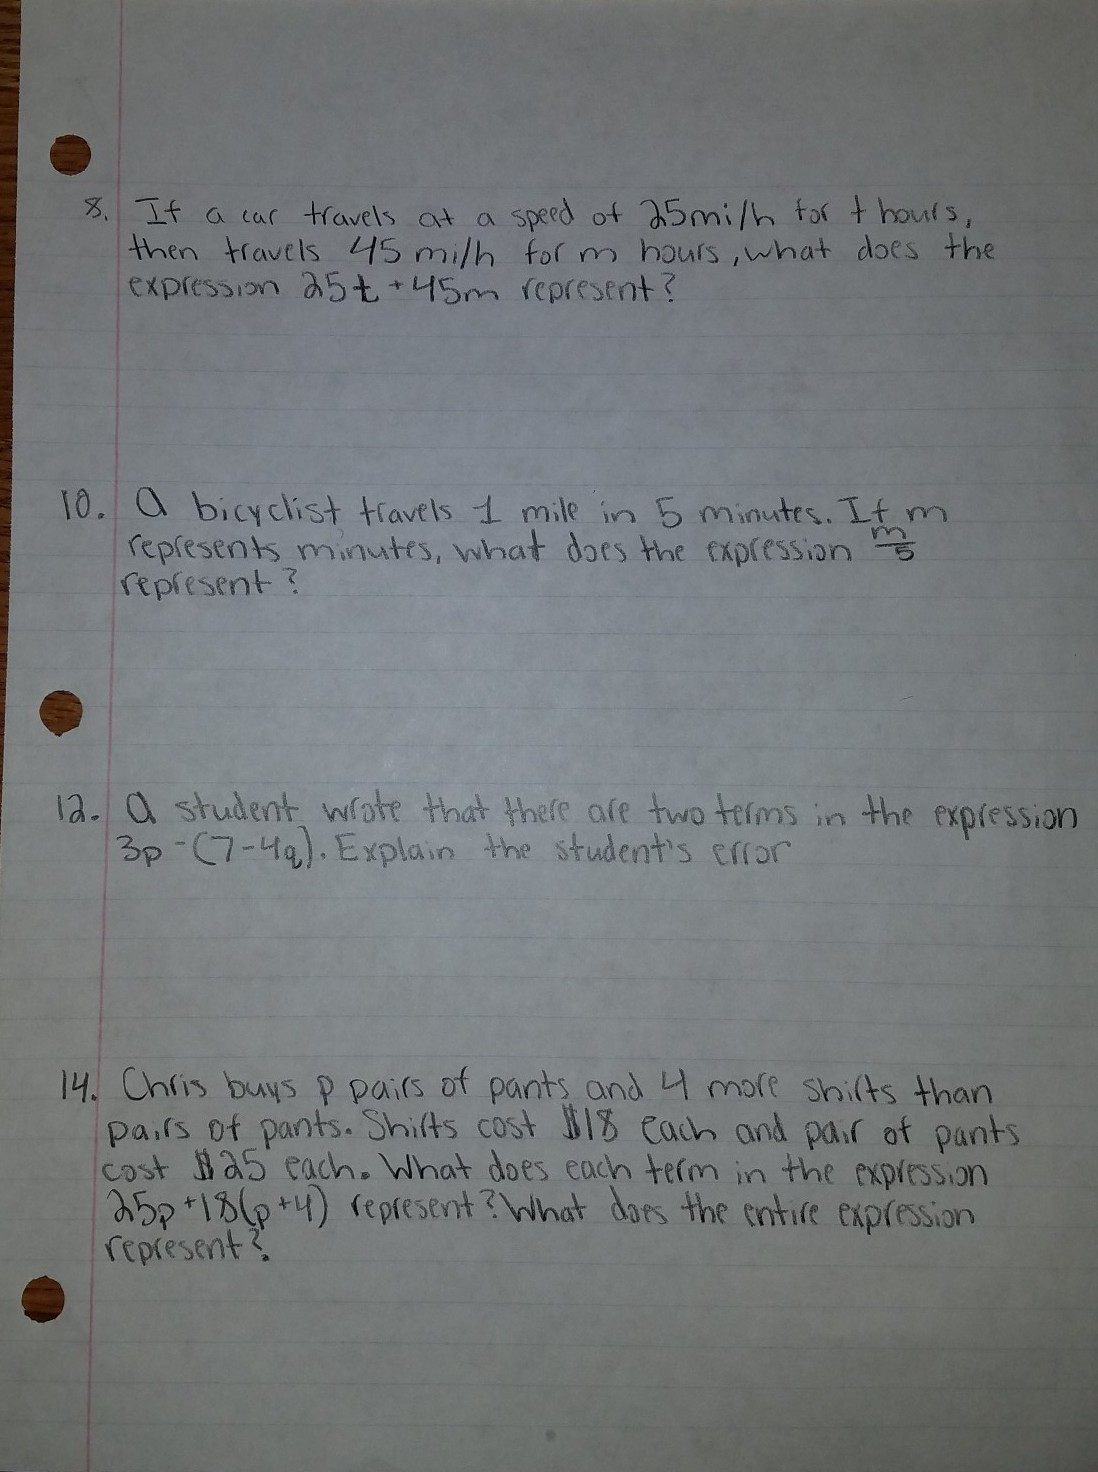 8. If a car travels at a speed of 25mi/h for t hours,
then travels 45 mi/h for m hours, what does the
expression 25t + 45m represent?
10. A bicyclist travels 1 mile in 5 minutes. If m
represents minutes, what does the expression m/5
represent?
12. A student wrote that there are two terms in the expression
3p - (7-4q). Explain the student's error
14. Chris buys p pairs of pants and 4 more shirts than
pairs of pants. Shirts cost $18 each and pair of pants
cost $25 each. What does each term in the expression
25p + 18(p+4) represent? What does the entire expression
represent?